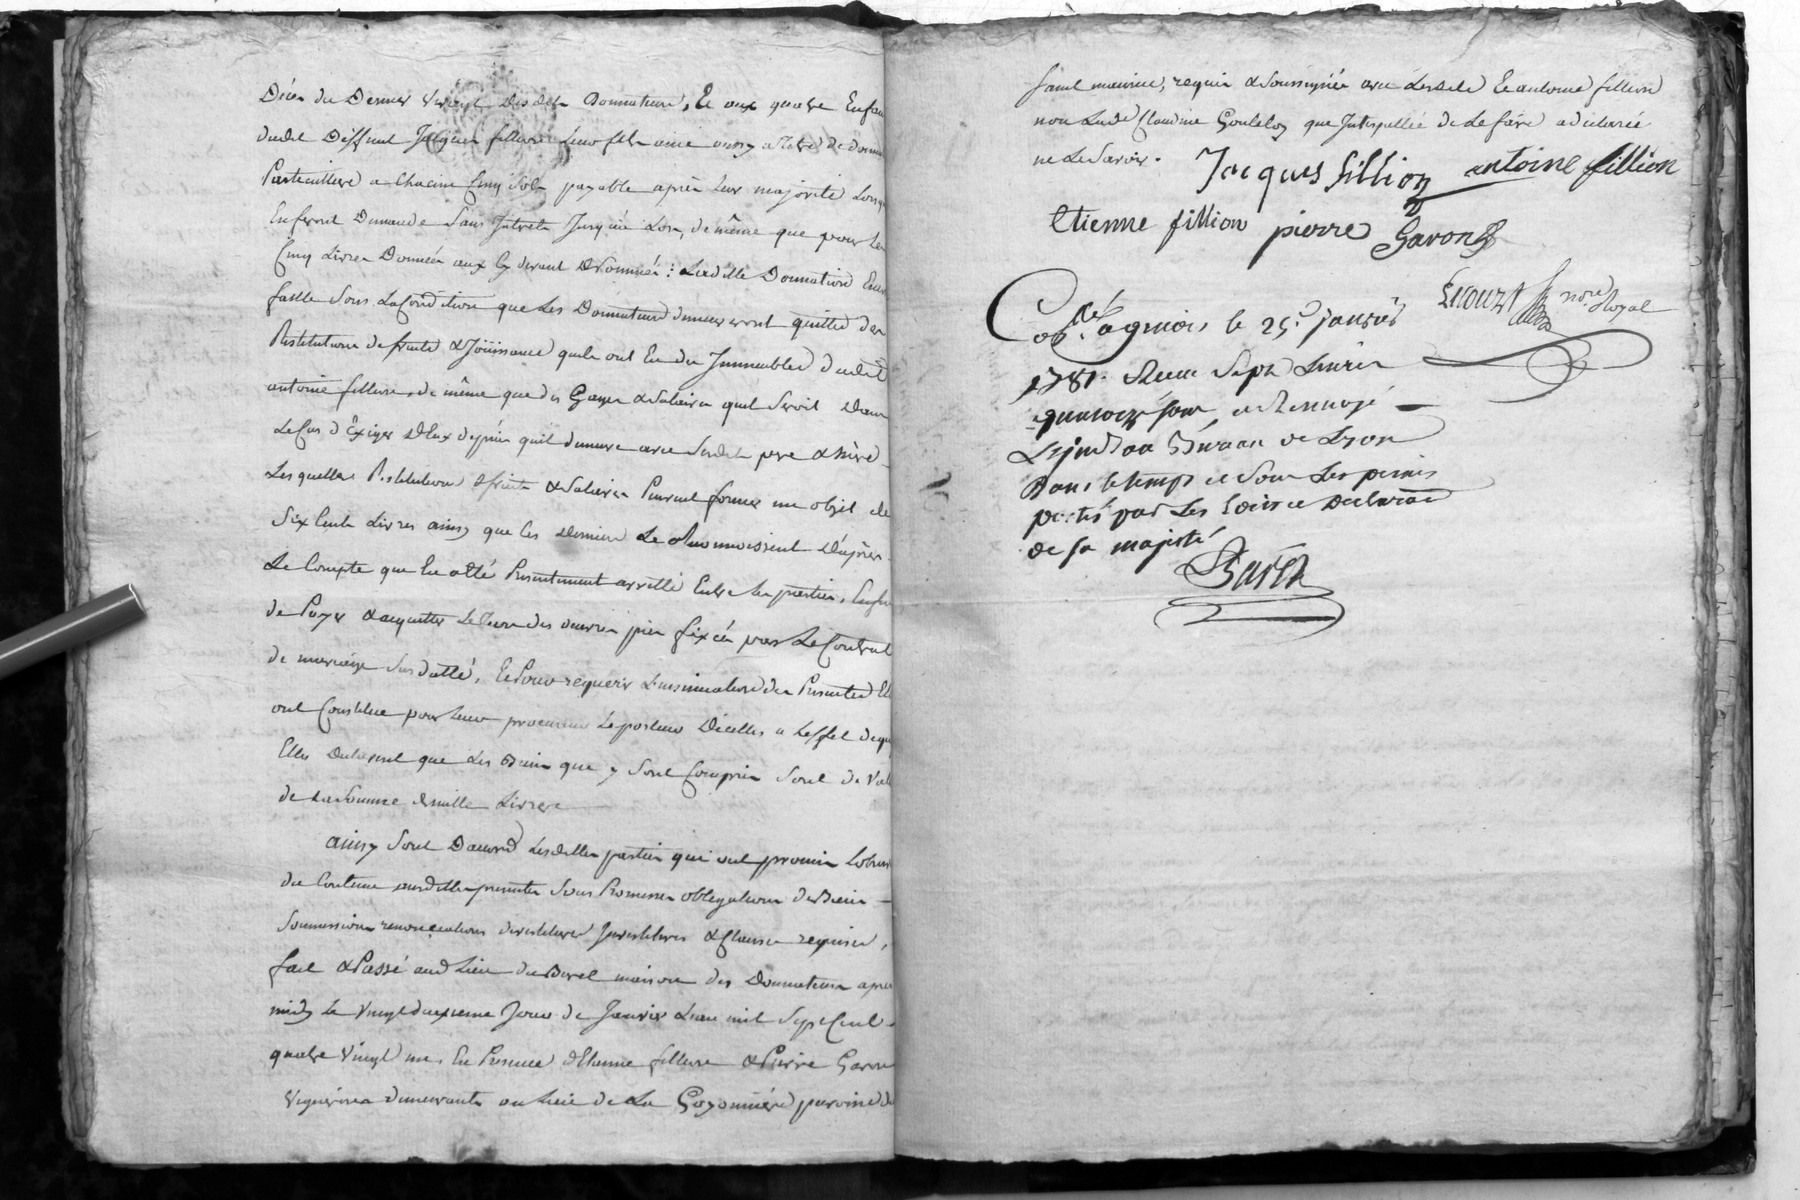 Décès du Dernier vivant desdits Donnateurs, Et aux quatre Enfan
dudit Deffunt Jacques fillion leur fils ainé aussy a Titre de donna
Particulliere a Chacun Cinq Sols payable après leur majorité Lorsq
En feront Demande Sans Interets Jusques Lors, de même que pour les
Cinq Livres Donnés aux Cy devant Nommés : Laditte Donnation Encor
faitte Sous La Condition que Les Donnateurs demeureront quittes des
Restitutions de fruits & Joüissance quils ont Eu des Immeubles dudit
antoine fillion, de même que des Gages & Salaires quil Seroit Dans
Le Cas d'Exiger d'Eux depuis quil demeure avec Sesdits pere & mere
Lesquelles Restitutions de fruits & Salaires Peuvent former un objet de
Six Cents Livres ainsy que les Derniers Le Reconnoissent D'après
Le Compte que En a Eté Presentement arretté Entre les parties, Enfin
de Payer & acquitter les Pensions fixées par Le Contrat
de mariage Susdatté, Et Pour requerir L'insinuation des Presentes Et
ont Constitué pour leur procureur Le porteur D'icelles a L'effet de quoy
Elles Declarent que Les Biens que y Sont Compris Sont de Val
de La Somme de mille Livres
ainsy Sont D'accord Lesdittes parties qui ont promis L'observ
du Contenu ausdittes presentes Sous Promesses obligations de Biens
Soumissions renonciations devestitures Investitures & Clauses requises,
fait & Passé aud. Lieu du Borel maison des Donnateurs après
midy Le Vingt deuxieme Jour de Janvier L'an mil Sept Cent
quatre Vingt un, En Presence d'Etienne fillion & Pierre Garon
Vignerons demeurants au Lieu de La Gayonniere paroisse de
Saint maurice, requis & Soussignés avec Lesdits Et antoine fillion
non Lade Claudine Goutelon que Interpellée de Le faire a declarée
ne Le Savoir.
Jacques fillion antoine fillion
Etienne fillion pierre Garon
not. Royal
le 25e Janvier
1781. Reçu Sept Livres
quatorze sous, et Renvoyé
au Bureau de Lyon
Dans le temps et Sous Les peines
portés par Les Edits et Declarations
de sa majesté